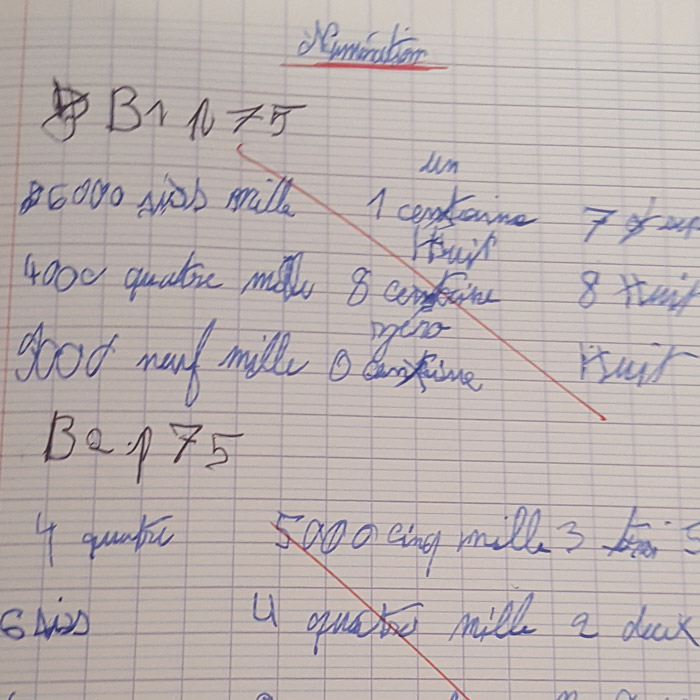 Numération
B1 p 75
un
6000 siss mille 1 centaine 7
Huit
4000 quatre mille 8 centaine 8 Huit
zéro
9000 neuf mille 0 centaine Huit
B2 p 75
4 quatre 5000 cinq mille 3 5
6 siss 4 quatre mille 2 deux